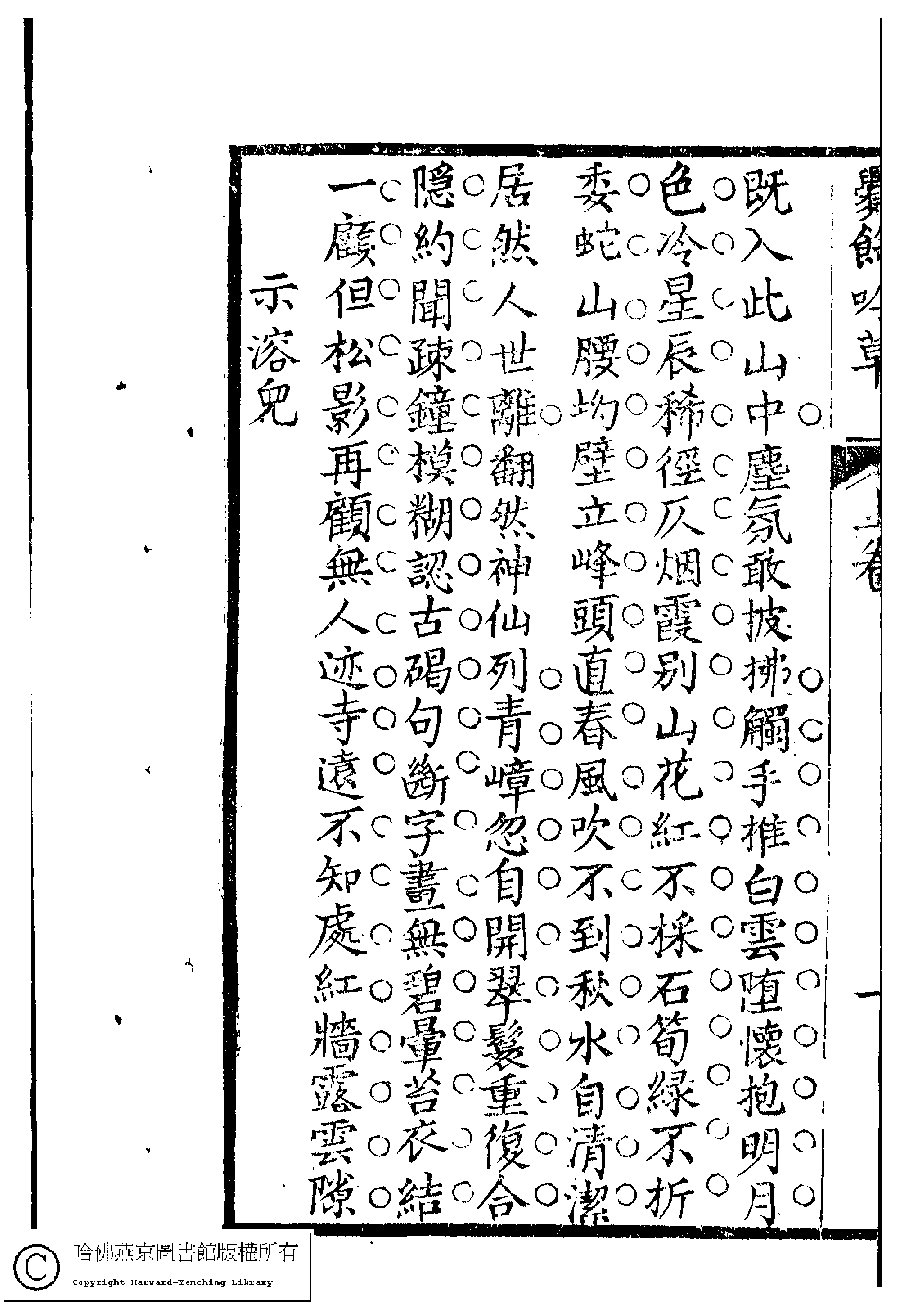 爨餘吟草
上卷
一
既入此山中塵氛敢披拂觸手推白雲堕懷抱明月
色冷星辰稀徑仄烟霞别山花紅不採石筍緑不折
委蛇山腰坳壁立峰頭直春風吹不到秋水自清潔
居然人世離翻然神仙列青嶂忽自開翠鬟重復合
隱約聞疎鐘模糊認古碣句斷字畫無碧暈苔衣結
一顧但松影再顧無人迹寺遠不知處紅牆露雲隙
示溶兒
哈佛燕京圖書館版權所有
Copyright Harvard-Yenching Library